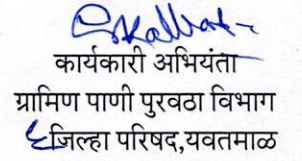 कार्यकारी अभियंता
ग्रामिण पाणी पुरवठा विभाग
जिल्हा परिषद,यवतमाळ